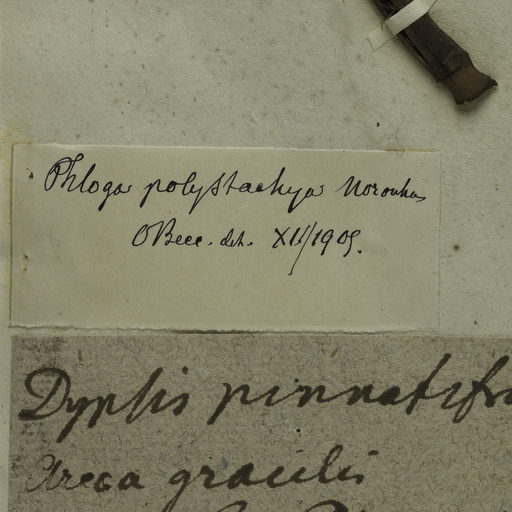 Phloga polystachya Noronha
OBecc. det. XII/1905.
Dypsis pinnatifr
Areca gracilis